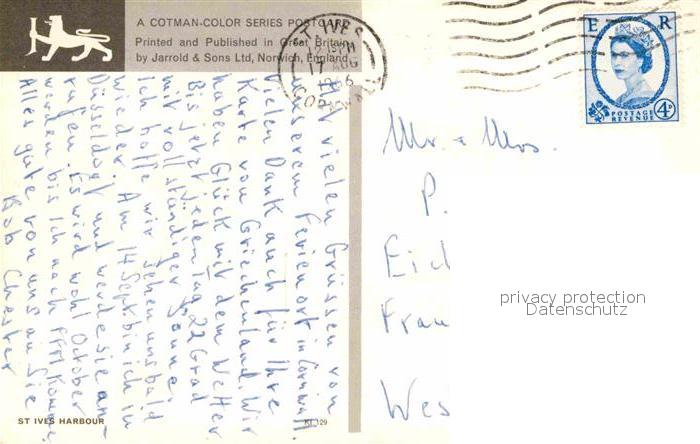 A COTMAN-COLOR SERIES POSTCARD
Printed and Published in Great Britain
by Jarrold & Sons Ltd, Norwich, England
ST IVES
12.15 PM
17 AUG
CORNWALL
E R
POSTAGE
REVENUE
4D
Mit vielen Grüssen von
unserem Ferienort in Cornwall.
Vielen Dank auch für Ihre
Karte von Griechenland. Wir
haben Glück mit dem Wetter
Bis jetzt jeden Tag 22 Grad
mit vollständiger Sonne.
Ich hoffe wir sehen uns bald
wieder. Am 14 Sept bin ich in
Düsseldorf und werde sie an-
rufen. Es wird wohl October
werden bis ich nach Ffm komme,
Alles gute von uns an Sie
Bob Chester
Mr. & Mrs.
P.
Eic
Fran
Wes
privacy protection
Datenschutz
ST IVES HARBOUR
129